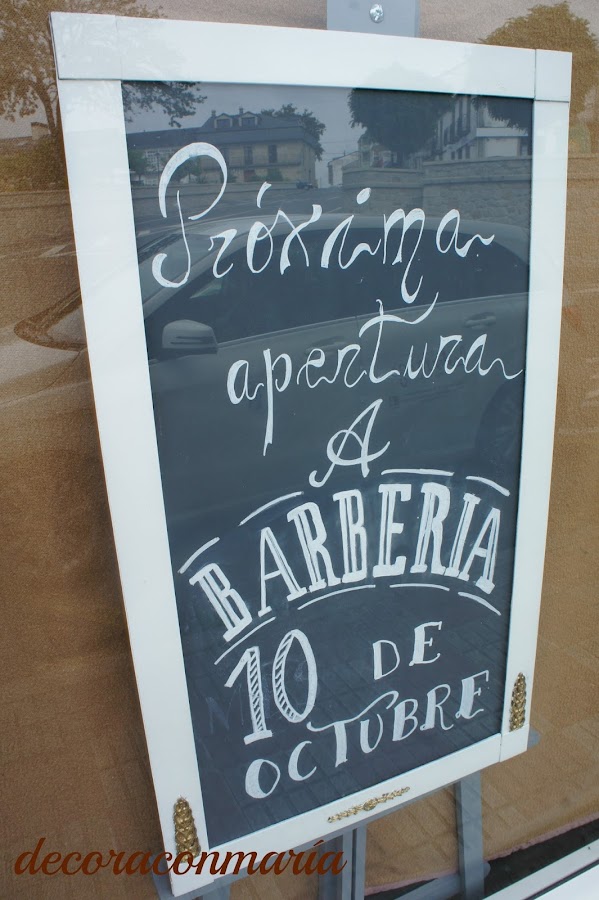 Próxima
apertura
A
BARBERIA
10 DE
OCTUBRE
decoraconmaría